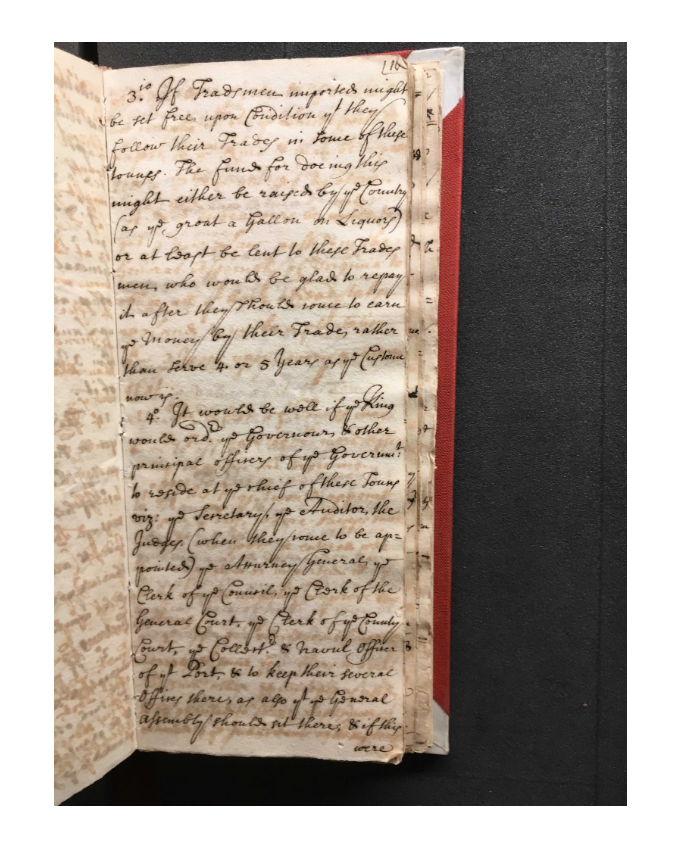 (16
3.io If Tradsmen imported might
be set free upon Condition yt they
follow their Trades in some of these
tounes. The fund for doeing this
might either be raised by ye Country
(as ye groat a Gallon on Liquors)
or at least be lent to these Trades
men, who would be glad to repay
it after they should come to earn
ye Money by their Trade, rather
than serve 4 or 5 Years as ye Custome
now is.
4.o It would be well if ye King
would ordr. ye Governour, & other
principal officers of ye Governmt:
to reside at ye chief of these Touns
viz: ye Secretary, ye Auditor, the
Judges (when they come to be ap=
pointed) ye Atturney General, ye
Clerk of ye Council, ye Clerk of the
General Court, ye Clerk of ye County
Court, ye Collectr. & Naval Officer
of yt Port, & to keep their several
Offices there, as also yt ye General
Assembly should sit there, & if this
were